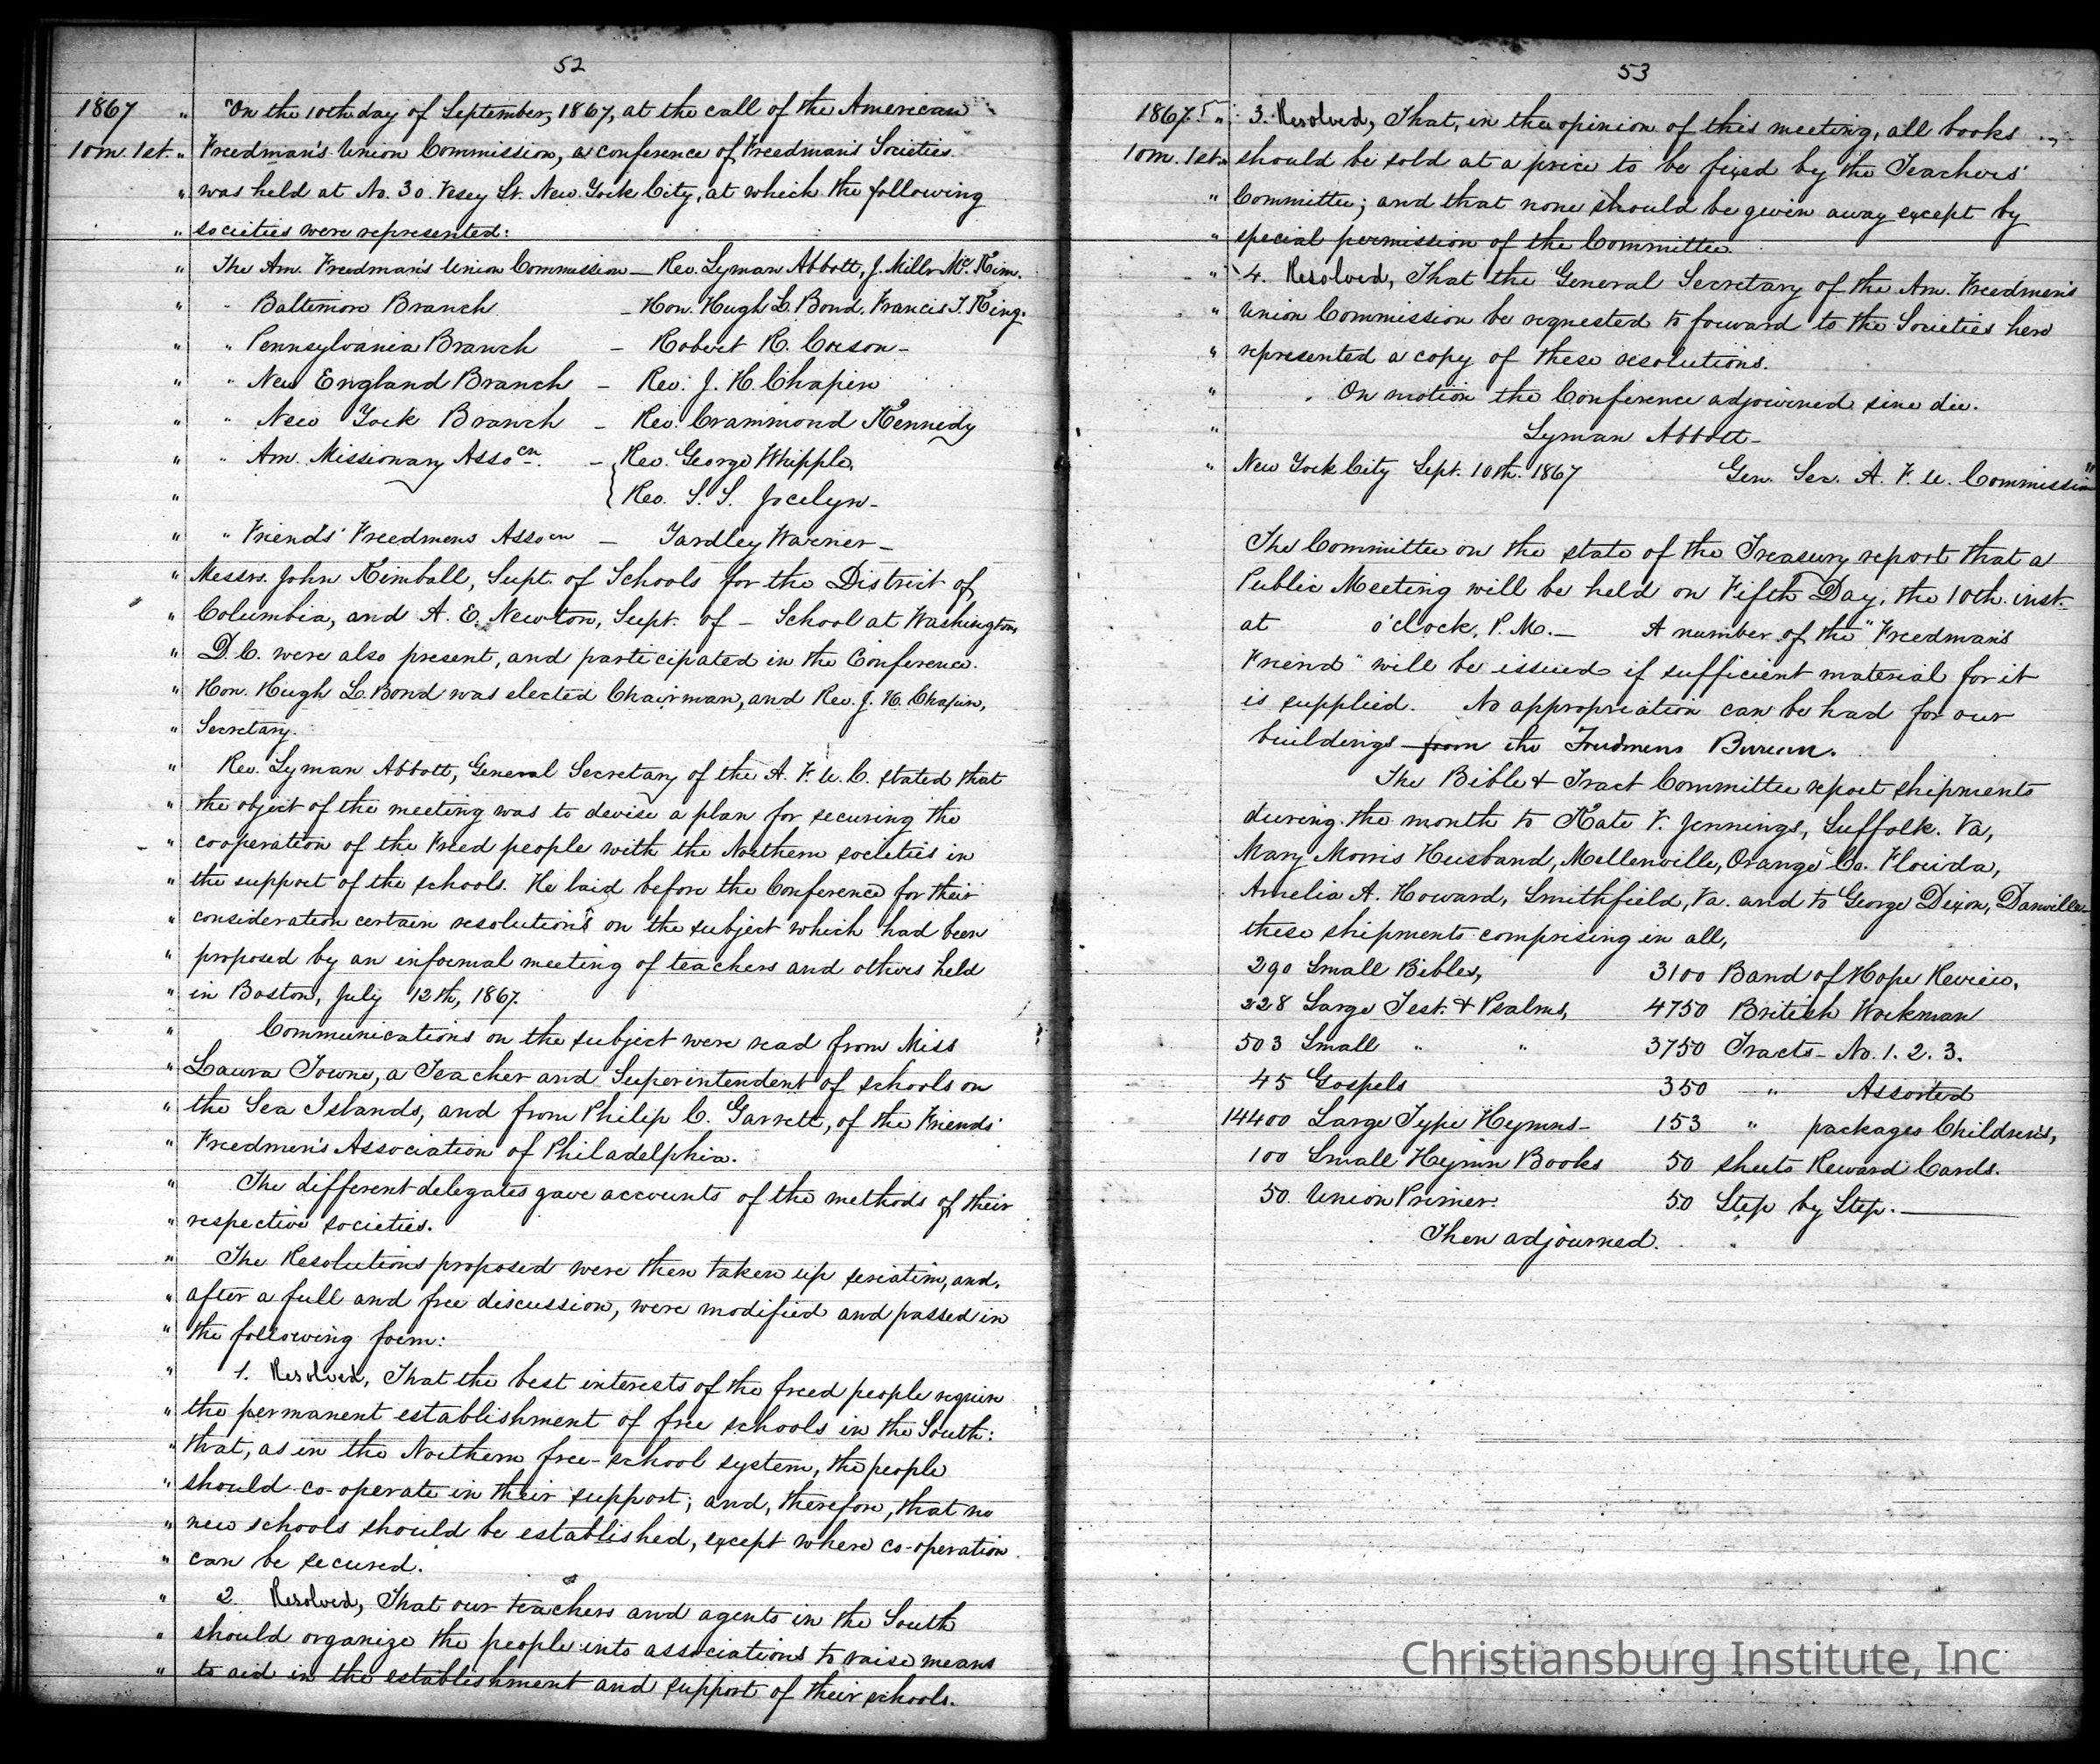 52
1867 " "On the 10th day of September, 1867, at the call of the American
10m. 1st. " Freedman's Union Commission, a conference of Freedman's Societies
" was held at No. 30. Vesey St. New. York City, at which the following
" societies were represented:
" The Am. Freedman's Union Commission — Rev. Lyman Abbott, J. Miller McKim.
" " Baltimore Branch — Hon. Hugh L. Bond, Francis T. King.
" " Pennsylvania Branch — Robert R. Corson —
" " New England Branch — Rev. J. H. Chapin
" " New York Branch — Rev. Crammond Kennedy
" " Am. Missionary Assocn. — { Rev. George Whipple,
" { Rev. S. S. Jocelyn —
" " Friends' Freedmens Assocn — Yardley Warner —
" Messrs. John Kimball, Supt. of Schools for the District of
" Columbia, and A. E. Newton, Supt. of — School at Washington,
" D. C. were also present, and participated in the Conference.
" Hon. Hugh L. Bond was elected Chairman, and Rev. J. H. Chapin,
" Secretary.
" Rev. Lyman Abbott, General Secretary of the A. F. U. C. stated that
" the object of the meeting was to devise a plan for securing the
" cooperation of the Freed people with the Northern societies in
" the support of the schools. He laid before the Conference for their
" consideration certain resolutions on the subject which had been
" proposed by an informal meeting of teachers and others held
" in Boston, July 12th, 1867.
" Communications on the subject were read from Miss
" Laura Towne, a Teacher and Superintendent of schools on
" the Sea Islands, and from Philip C. Garrett, of the Friends'
" Freedmen's Association of Philadelphia.
" The different delegates gave accounts of the methods of their
" respective societies.
" The Resolutions proposed were then taken up seriatim, and,
" after a full and free discussion, were modified and passed in
" the following form:
" 1. Resolved, That the best interests of the freed people require
" the permanent establishment of free schools in the South:
" that, as in the Northern free-school system, the people
" should co-operate in their support; and, therefore, that no
" new schools should be established, except where co-operation
" can be secured.
" 2. Resolved, That our teachers and agents in the South
" should organize the people into associations to raise means
" to aid in the establishment and support of their schools.
53
1867. " 3. Resolved, That, in the opinion of this meeting, all books
10m. 1st. " should be sold at a price to be fixed by the Teachers'
" Committee; and that none should be given away except by
" special permission of the Committee.
" 4. Resolved, That the General Secretary of the Am. Freedmen's
" Union Commission be requested to forward to the Societies here
" represented a copy of these resolutions.
" On motion the Conference adjourned sine die.
" Lyman Abbott —
" New York City Sept. 10th. 1867 Gen. Sec. A. F. U. Commission"
The Committee on the state of the Treasury report that a
Public Meeting will be held on Fifth Day, the 10th. inst.
at o'clock, P. M. — A number of the "Freedman's
Friend" will be issued if sufficient material for it
is supplied. No appropriation can be had for our
buildings from the Freedmens Bureau.
The Bible & Tract Committee report shipments
during the month to Kate F. Jennings, Suffolk. Va,
Mary Morris Husband, Mellenville, Orange Co. Florida,
Amelia A. Howard, Smithfield, Va. and to George Dixon, Danville
these shipments comprising in all,
290 Small Bibles, 3100 Band of Hope Review,
228 Large Test. & Psalms, 4750 British Workman
503 Small " " 3750 Tracts — No. 1. 2. 3.
45 Gospels 350 " Assorted
14400 Large Type Hymns — 153 " packages Children's,
100 Small Hymn Books 50 sheets Reward Cards.
50. Union Primer. 50 Step by Step. —
Then adjourned.
Christiansburg Institute, Inc